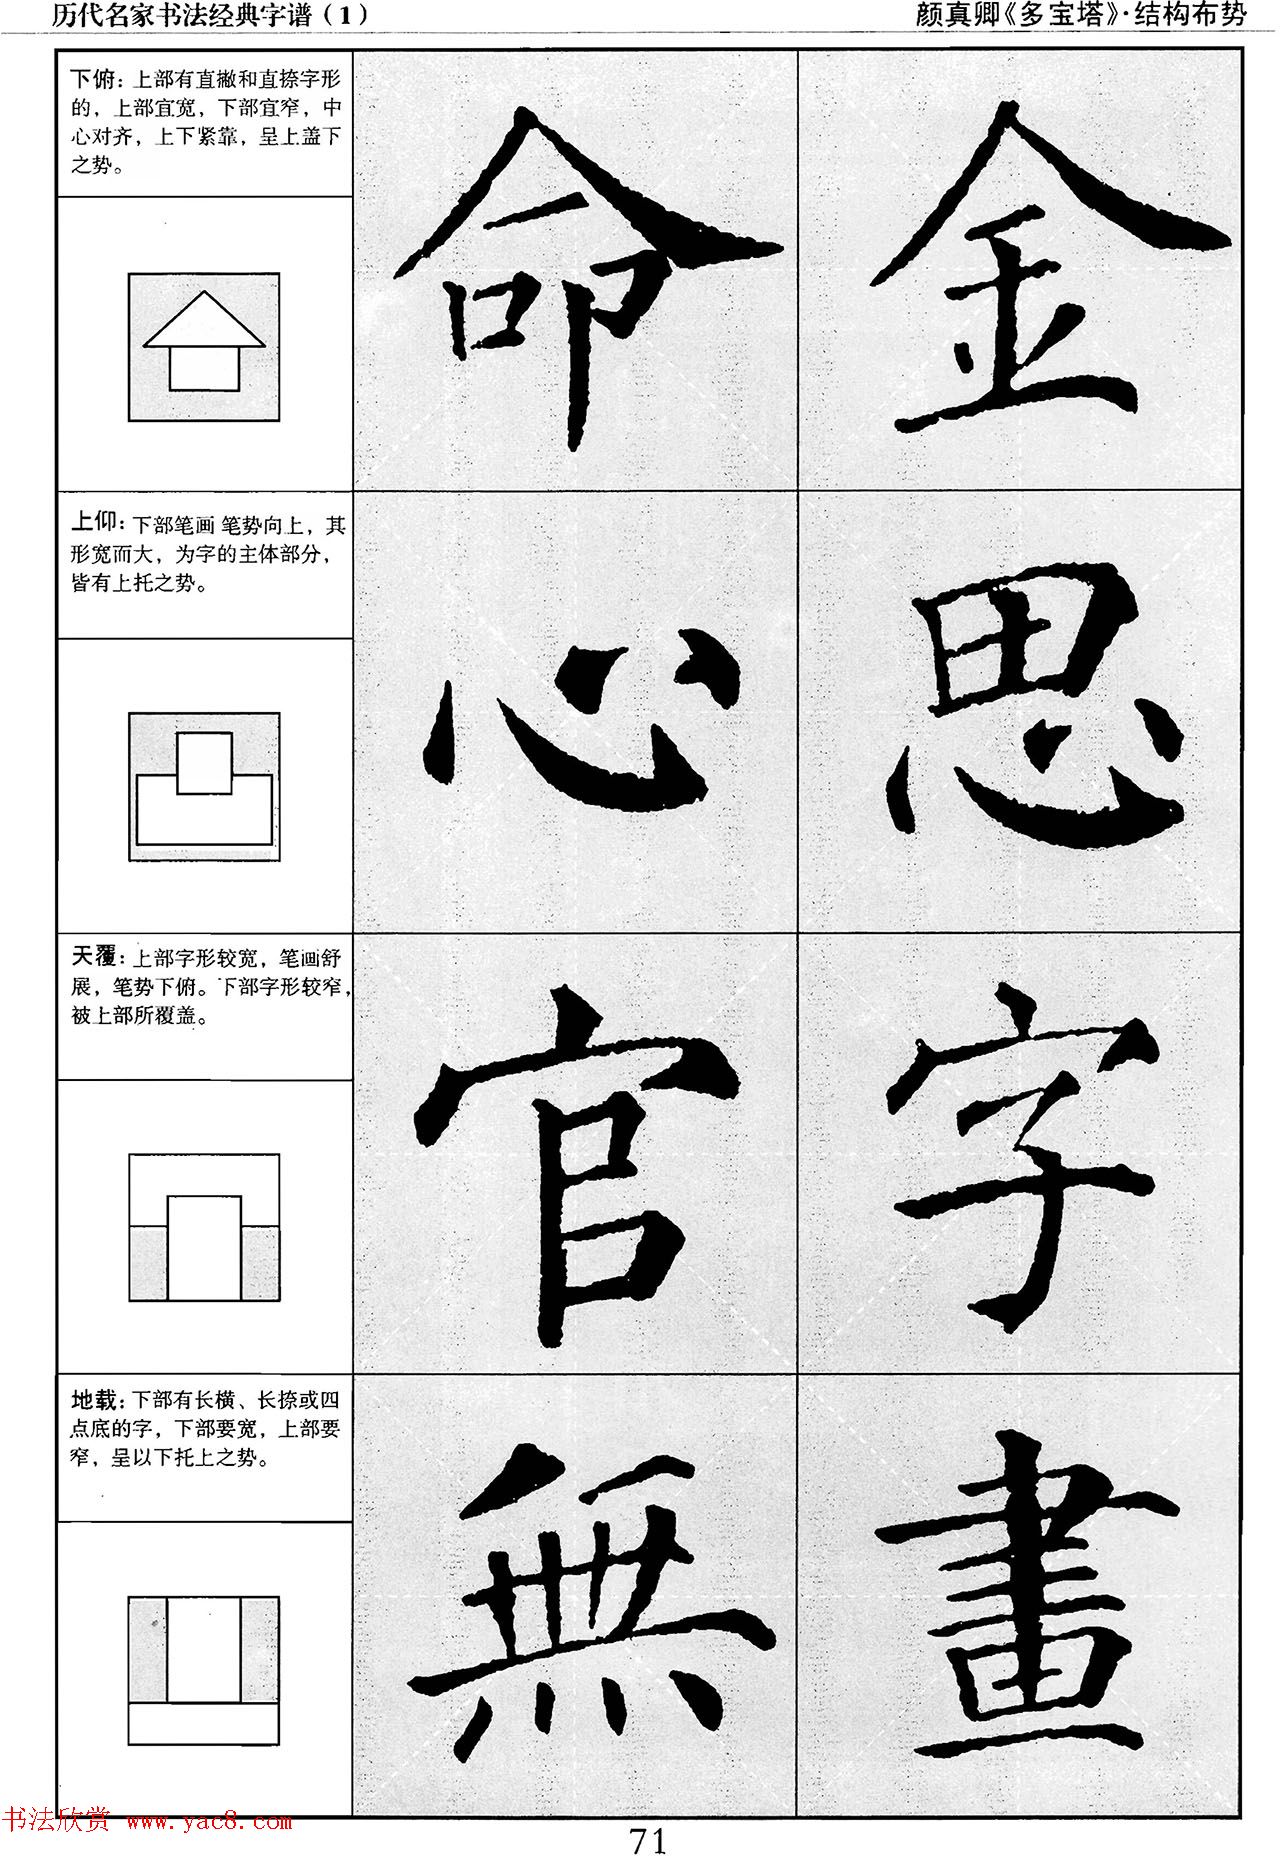 历代名家书法经典字谱（1）
颜真卿《多宝塔》·结构布势
下俯：上部有直撇和直捺字形
的，上部宜宽，下部宜窄，中
心对齐，上下紧靠，呈上盖下
之势。
命 金
上仰：下部笔画笔势向上，其
形宽而大，为字的主体部分，
皆有上托之势。
心 思
天覆：上部字形较宽，笔画舒
展，笔势下俯。下部字形较窄，
被上部所覆盖。
官 字
地载：下部有长横、长捺或四
点底的字，下部要宽，上部要
窄，呈以下托上之势。
無 畫
书法欣赏 www.yac8.com
71